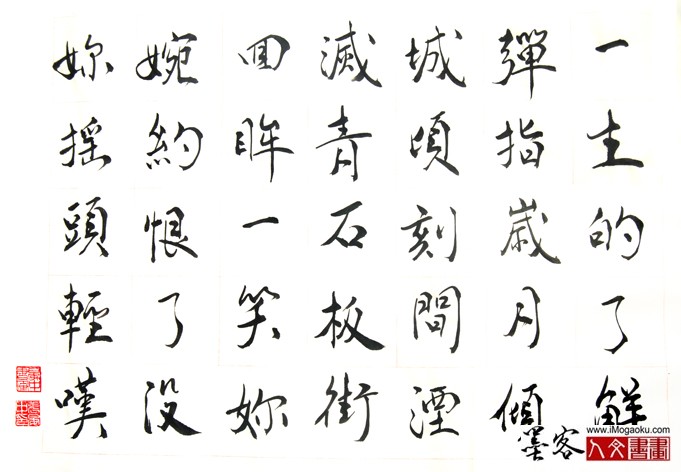 一生的了解
彈指歲月傾
城頃刻間湮
滅青石板街
回眸一笑妳
婉約恨了没
妳摇頭輕嘆
墨客
www.iMogaoku.com
人文書畫